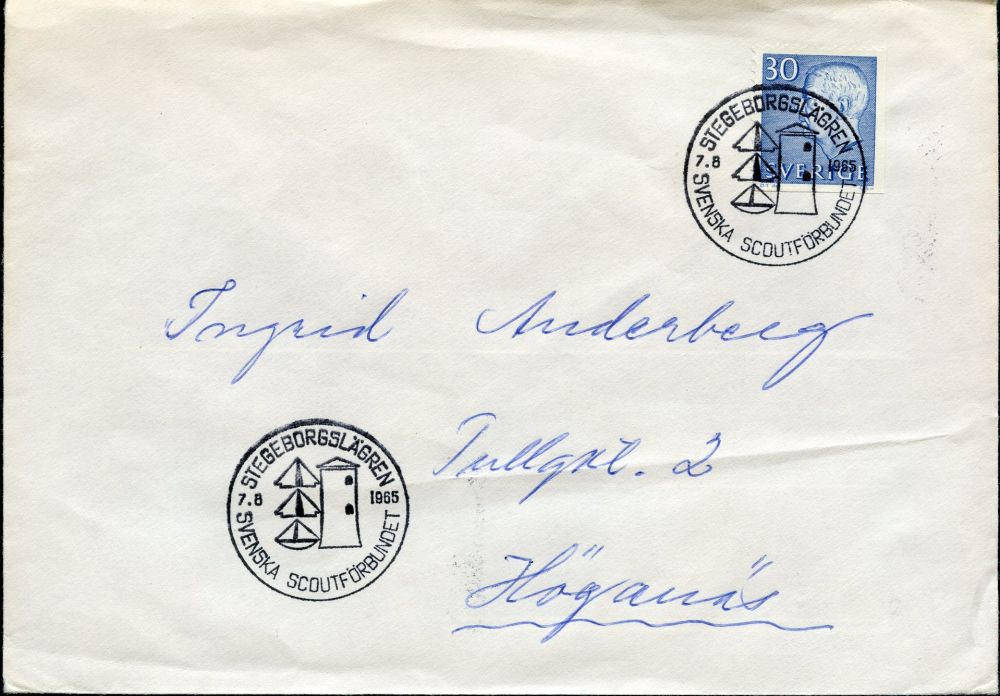 30
SVERIGE
STEGEBORGSLÄGREN
7.8 1965
SVENSKA SCOUTFÖRBUNDET
Ingrid Anderberg
2
Höganäs
STEGEBORGSLÄGREN
7.8 1965
SVENSKA SCOUTFÖRBUNDET